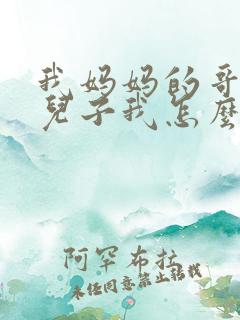 我妈妈的哥
兒子我怎麼
阿罕布拉
未经同意禁止转载